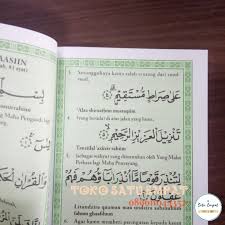 AASIIN
Maha Pengasih lagi
وَالْقُرْاٰنِ
Sesungguhnya kamu salah seorang dari rasul-
rasul,
عَلٰى صِرَاطٍ مُّسْتَقِيْمٍ ﴿٤﴾
'Alaa shiraathin mustaqiim
(yang berada) di atas jalan yang lurus,
تَنْزِيْلَ الْعَزِيْزِ الرَّحِيْمِ ﴿٥﴾
Tanziilal 'aziizir rahiim
(sebagai wahyu) yang diturunkan oleh Yang Maha
Perkasa lagi Maha Penyayang,
TOKO SATU
لِتُنْذِرَ قَوْمًا مَّآ اُنْذِرَ اٰبَآؤُهُمْ فَهُمْ
Litundzira qauman maa undzira aabaa-uhum
fahum ghaafiluun
Agar kamu memberi peringatan kepada kaum